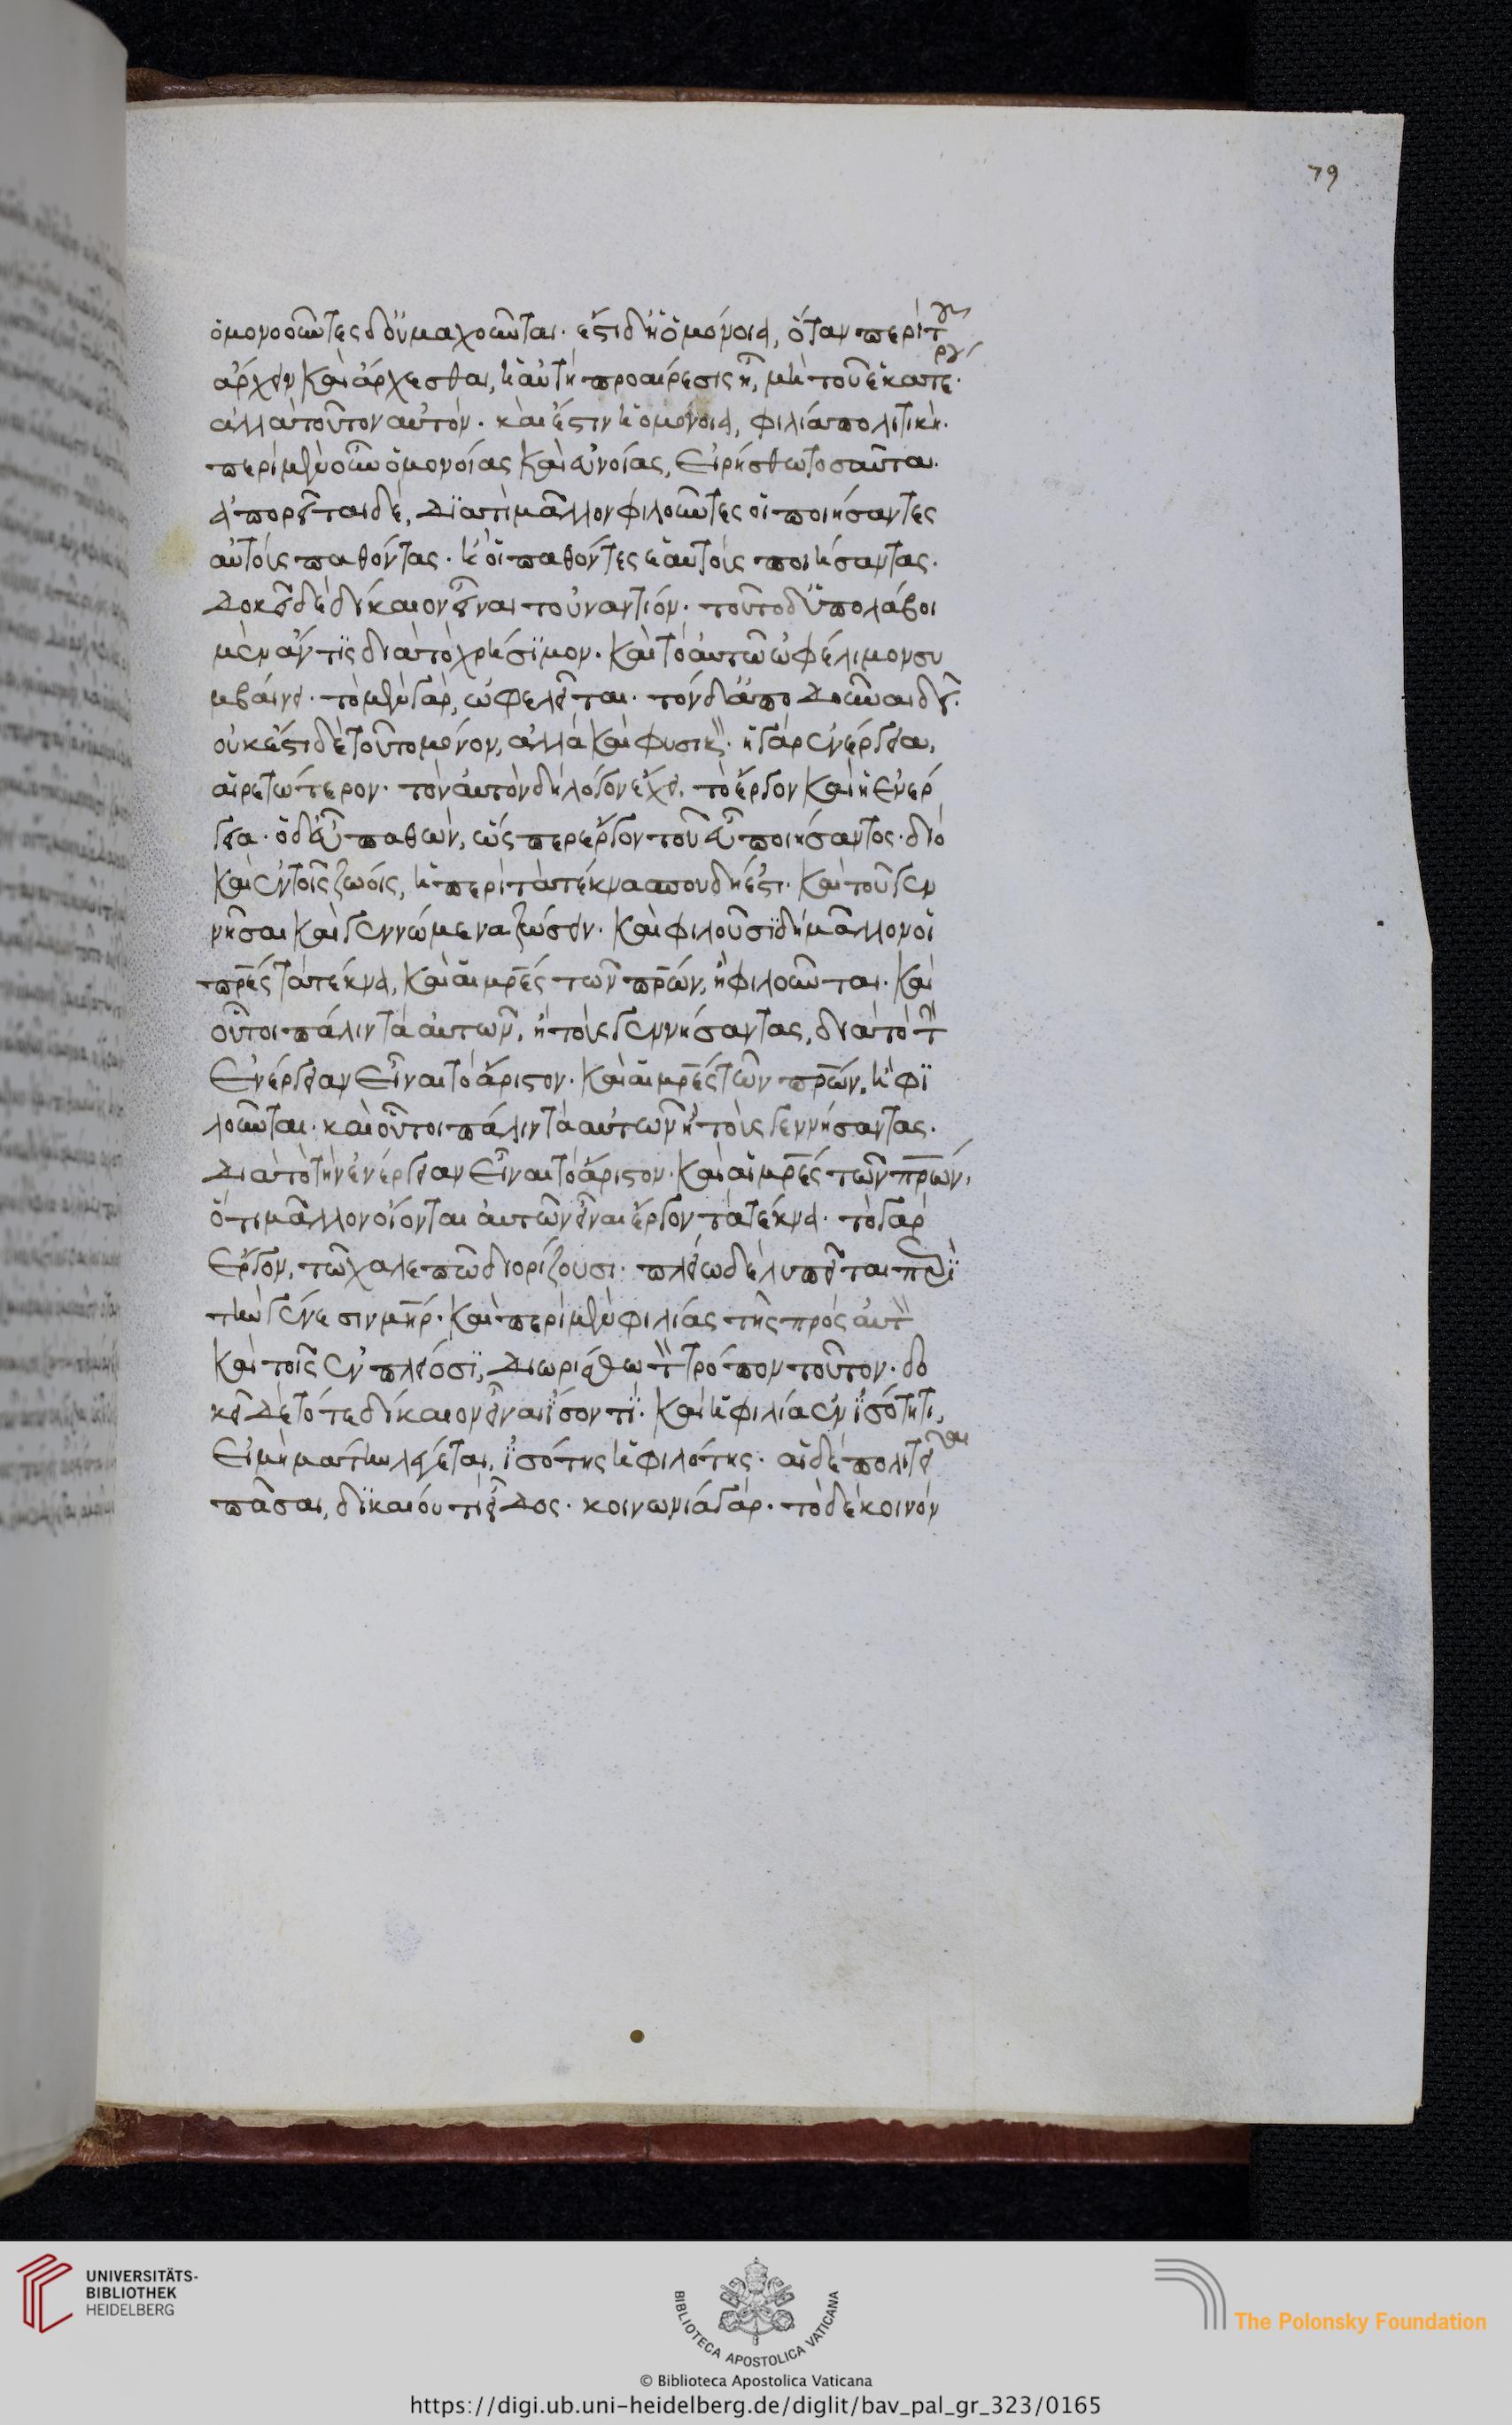 79
ὁμονοοῦντες δ οὐ μαχοῦνται. ἔστι δὴ ἡ ὁμόνοια, ὅταν περὶ τ
ἄρχειν καὶ ἄρχεσθαι, ἡ αὐτὴ προαίρεσις ἦ, μὴ τοῦ ἑκάτε.
ἀλλὰ τοῦτον αὐτόν. καὶ ἔστιν ἡ ὁμόνοια, φιλία πολιτική.
περὶ μὲν οὖν ὁμονοίας καὶ εὐνοίας, εἰρήσθω τοσαῦτα.
ἀπορεῖται δὲ, διατί μᾶλλον φιλοῦντες οἱ ποιήσαντες
αὐτοὺς παθόντας. ἢ οἱ παθόντες ἑαυτοὺς ποιήσαντας.
Δοκεῖ δὲ δίκαιον εἶναι τοὐναντίον. τοῦτο δ ὑπολάβοι
μὲν ἄν τις διὰ τὸ χρήσϊμον. καὶ τὸ αὐτῶ ὠφέλιμον συ
μβαίνει. τὸ μὲν γὰρ, ὠφελεῖται. τὸν δ ἀποδοῦναι δεῖ.
οὐκ ἔστι δὲ τοῦτο μόνον, ἀλλὰ καὶ φυσικ. ἡ γὰρ ἐνέργεια,
αἱρετώτερον. τὸν αὐτὸν δὴ λόγον ἔχει, τὸ ἔργον καὶ ἡ ἐνέρ
γεια. ὁ δ εὖ παθὼν, ὥς περ ἔργον τοῦ εὖ ποιήσαντος. διὸ
καὶ ἐν τοῖς ζώοις, ἡ περὶ τὰ τέκνα σπουδή ἐστι. καὶ τοῦ γεν
νῆσαι καὶ γεννώμενα ζώσειν. καὶ φιλοῦσϊ δὴ μᾶλλον οἱ
πρες τὰ τέκνα, καὶ αἱ μρες τῶν πρων, ἢ φιλοῦνται. καὶ
οὗτοι πάλιν τὰ αὐτῶν, ἢ τοὺς γεννήσαντας, διὰ τὸ τ
ἐνέργειαν εἶναι τὸ ἄριστον. καὶ αἱ μρες τῶν πρων, ἢ φϊ
λοῦνται. καὶ οὗτοι πάλιν τὰ αὐτῶν ἢ τοὺς γεννήσαντας.
Διὰ τὸ τὴν ἐνέργειαν εἶναι τὸ ἄριστον. καὶ αἱ μρες τῶν πρων,
ὅτι μᾶλλον οἴονται αὐτῶν εἶναι ἔργον τὰ τέκνα. τὸ γὰρ
ἔργον, τῶ χαλεπῶ διορίζουσι. πλείω δὲ λυπεῖται περὶ
τὴν γένεσιν μηρ. καὶ περὶ μὲν φιλίας τῆς πρὸς αὑτ
καὶ τοῖς ἐν πλείοσϊ, διωρίσθω τ τρόπον τοῦτον. δο
κεῖ δὲ τό τε δίκαιον εἶναι ἴσον τϊ. καὶ ἡ φιλία ἐν ἰσότητι,
εἰ μὴ μάτην λέγεται, ἰσότης ἡ φιλότης. αἱ δὲ πολιτεῖαι
πᾶσαι, δϊκαίου τὶ εἶδος. κοινωνία γάρ. τὸ δὲ κοινὸν
UNIVERSITÄTS-
BIBLIOTHEK
HEIDELBERG
BIBLIOTECA APOSTOLICA VATICANA
The Polonsky Foundation
© Biblioteca Apostolica Vaticana
https://digi.ub.uni-heidelberg.de/diglit/bav_pal_gr_323/0165